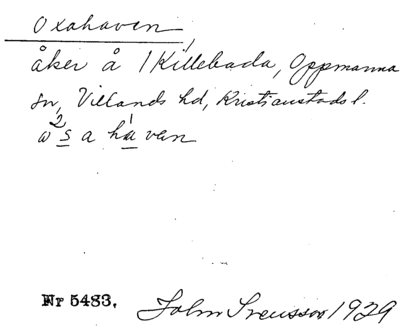 Oxahaven,
åker å 1 Killebada, Oppmanna
sn, Villands hd, Kristianstads l.
w2sahàven
Nr 5483. John Svensson 1929